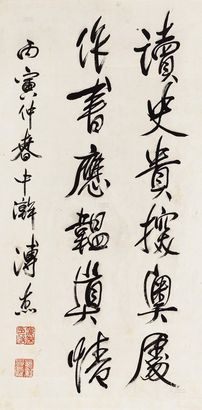 讀史貴探奧
作書應韞真情
丙寅仲春中澣 溥杰